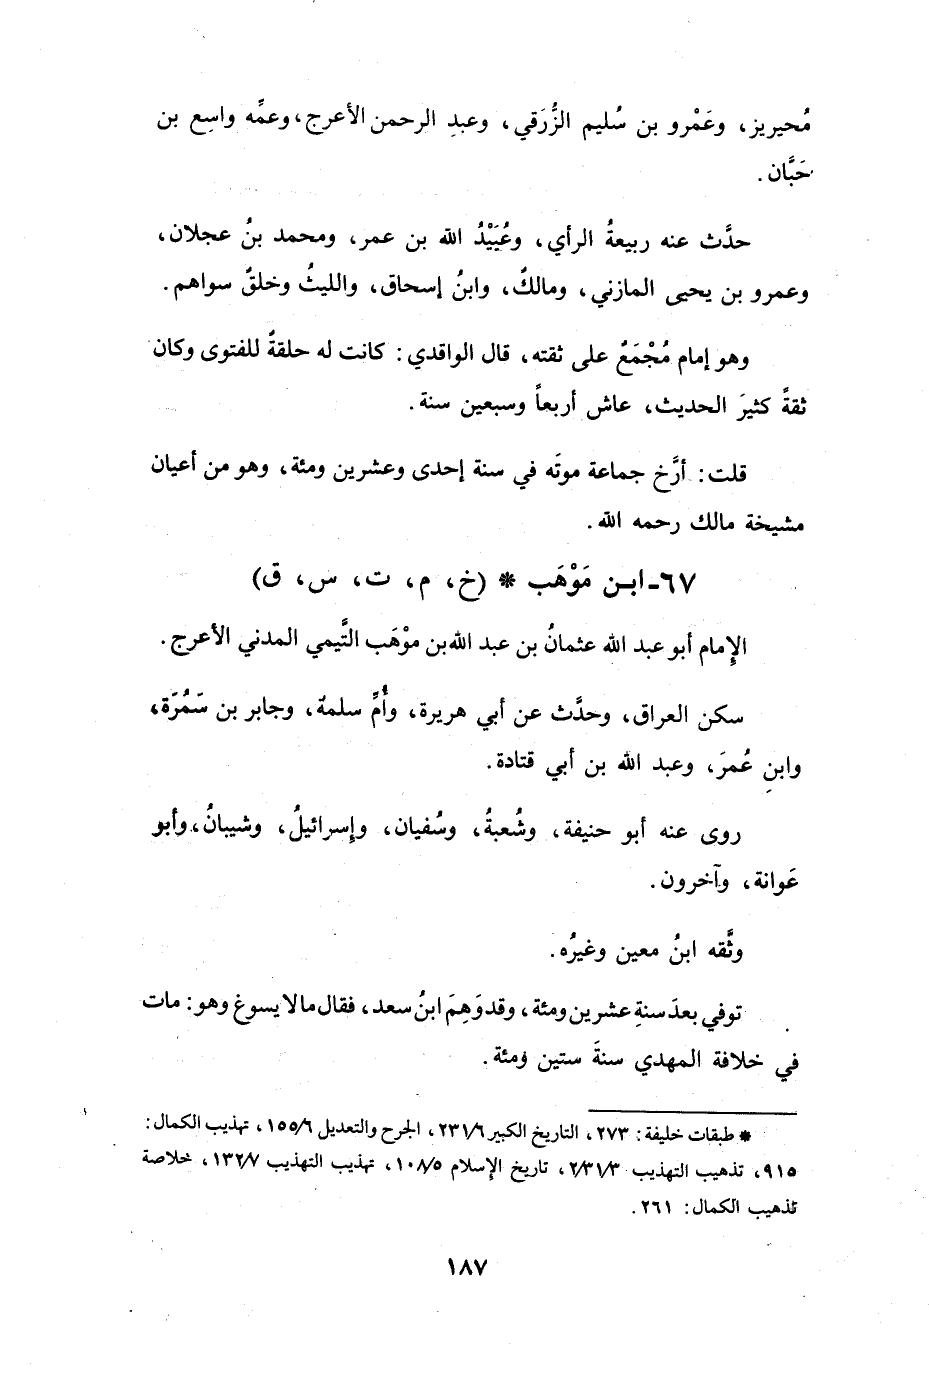 مُحيريز، وعَمْرو بن سُليم الزُّرَقي، وعبدِ الرحمن الأعرج، وعمِّه واسِع بن
حَبَّان.
حدَّث عنه ربيعةُ الرأي، وعُبَيْدُ الله بن عمر، ومحمد بنُ عجلان،
وعمرو بن يحيى المازني، ومالكٌ، وابنُ إسحاق، والليثُ وخلقٌ سواهم.
وهو إمام مُجْمَعٌ على ثقته، قال الواقدي: كانت له حلقةٌ للفتوى وكان
ثقةً كثيرَ الحديث، عاش أربعاً وسبعين سنة.
قلت: أرَّخ جماعة موتَه في سنة إحدى وعشرين ومئة، وهو من أعيان
مشيخة مالك رحمه الله.
٦٧ـ ابن مَوْهَب * (خ، م، ت، س، ق)
الإِمام أبو عبد الله عثمانُ بن عبد الله بن موْهَب التَّيمي المدني الأعرج.
سكن العراق، وحدَّث عن أبي هريرة، وأُمِّ سلمة، وجابر بن سَمُرَة،
وابنِ عُمرَ، وعبد الله بن أبي قتادة.
روى عنه أبو حنيفة، وشُعبةُ، وسُفيان، وإسرائيلُ، وشيبانُ، وأبو
عَوانة، وآخرون.
وثَّقه ابنُ معين وغيرُه.
توفي بعدَ سنةِ عشرين ومئة، وقد وَهِمَ ابنُ سعد، فقال ما لا يسوغ وهو: مات
في خلافة المهدي سنةَ ستين ومئة.
* طبقات خليفة: ٢٧٣، التاريخ الكبير ٢٣١/٦، الجرح والتعديل ١٥٥/٦، تهذيب الكمال:
٩١٥، تذهيب التهذيب ٢/٣١/٣، تاريخ الإسلام ١٠٨/٥، تهذيب التهذيب ١٣٢/٧، خلاصة
تذهيب الكمال: ٢٦١.
١٨٧